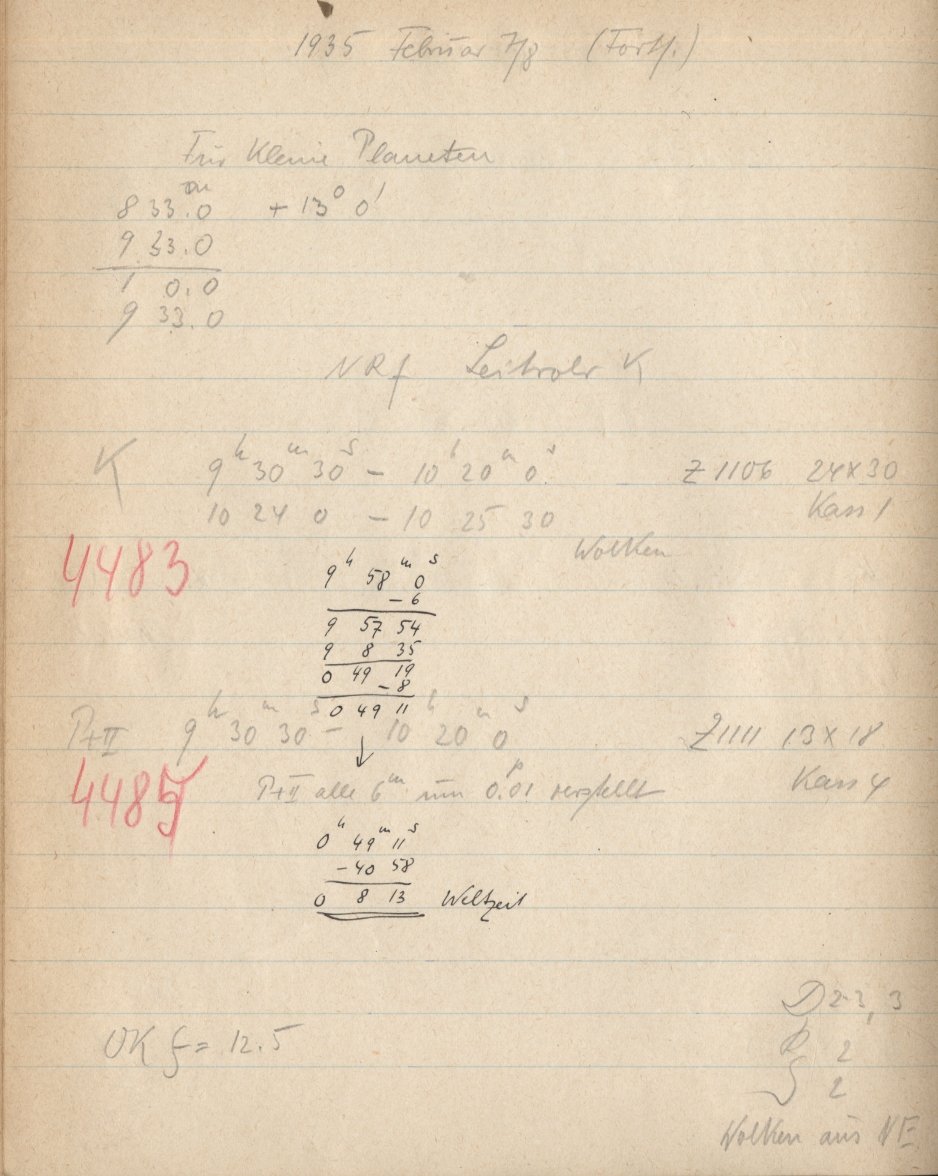 1935 Februar 7/8 (Forts.)
Für Kleine Planeten
8 33.0 + 13° 0'
9 33.0
1 0.0
9 33.0
NRf Leitrohr K
K 9h 30m 30s – 10h 20m 0s Z 1106 24x30
10 24 0 – 10 25 30 Kass 1
Wolken
4483
9h 58m 0s
– 6
9 57 54
9 8 35
0 49 19
– 8
0 49 11
P+II 9h 30m 30s – 10h 20m 0s Z 1111 13x18
4485
P+II alle 6m um 0.01 verstellt Kass 4
0h 49m 11s
– 40 58
0 8 13 Weltzeit
D 2-3, 3
OK f = 12.5
2
2
Wolken aus NE